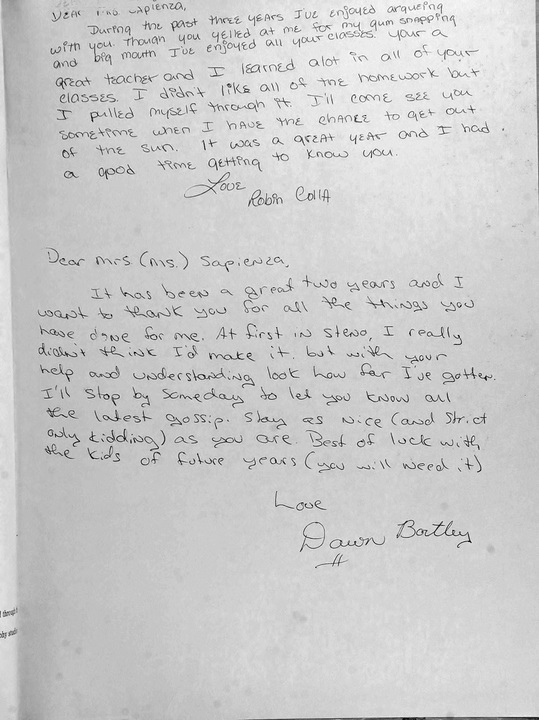 Dear Mrs Sapienza,
During the past three years I've enjoyed arqueing
with you. Though you yelled at me for my gum snapping
and big mouth I've enjoyed all your classes. your a
great teacher and I learned alot in all of your
classes. I didn't like all of the homework but
I pulled myself through it. I'll come see you
sometime when I have the chance to get out
of the sun. It was a great year and I had
a good time getting to know you.
Love
Robin Colla
Dear Mrs (Ms.) Sapienza,
It has been a great two years and I
want to thank you for all the things you
have done for me. At first in Steno, I really
didn't think I'd make it. but with your
help and understanding look how far I've gotten.
I'll stop by someday to let you know all
the latest gossip. Stay as nice (and strict
only kidding) as you are. Best of luck with
the kids of future years (you will need it)
Love
Dawn Bartley
through